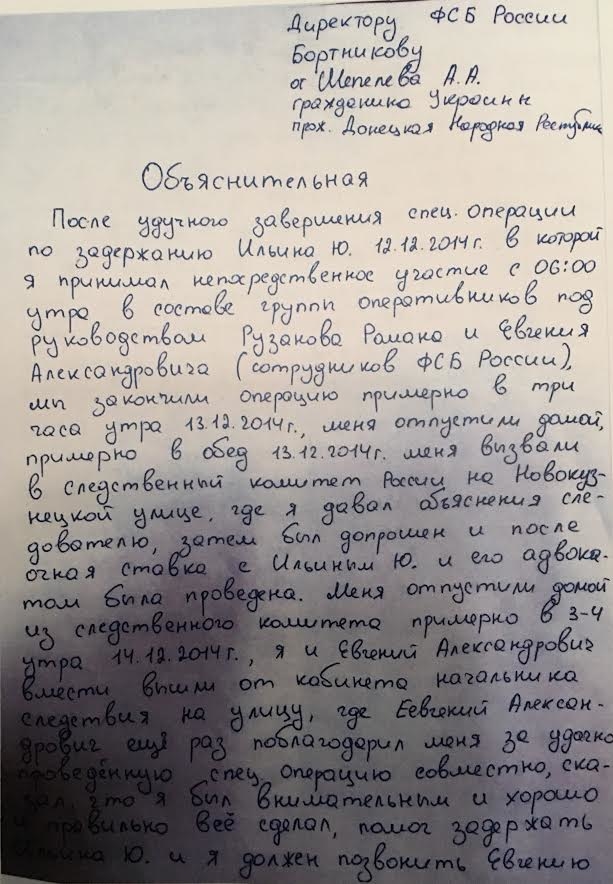 Директору ФСБ России
Бортникову
от Шепелева А.А.
гражданина Украины
прож. Донецкая Народная Республика
Объяснительная
После удучного завершения спец. операции
по задержанию Ильина Ю. 12.12.2014г. в которой
я принимал непосредственное участие с 06:00
утра в составе группы оперативников под
руководством Рузанова Романа и Евгения
Александровича (сотрудников ФСБ России),
мы закончили операцию примерно в три
часа утра 13.12.2014г., меня отпустили домой,
примерно в обед 13.12.2014г. меня вызвали
в следственный комитет России на Новокуз-
нецкой улице, где я давал объяснения сле-
дователю, затем был допрошен и после
очная ставка с Ильиным Ю. и его адвока-
том была проведена. Меня отпустили домой
из следственного комитета примерно в 3-4
утра 14.12.2014г., я и Евгений Александрович
вмести вышли от кабинета начальника
следствия на улицу, где Еевгений Алексан-
дрович ещё раз поблагодарил меня за удачно
проведённую спец. операцию совместно, ска-
зал, что я был внимательным и хорошо
и правильно всё сделал, помог задержать
Ильина Ю. и я должен позвонить Евгению